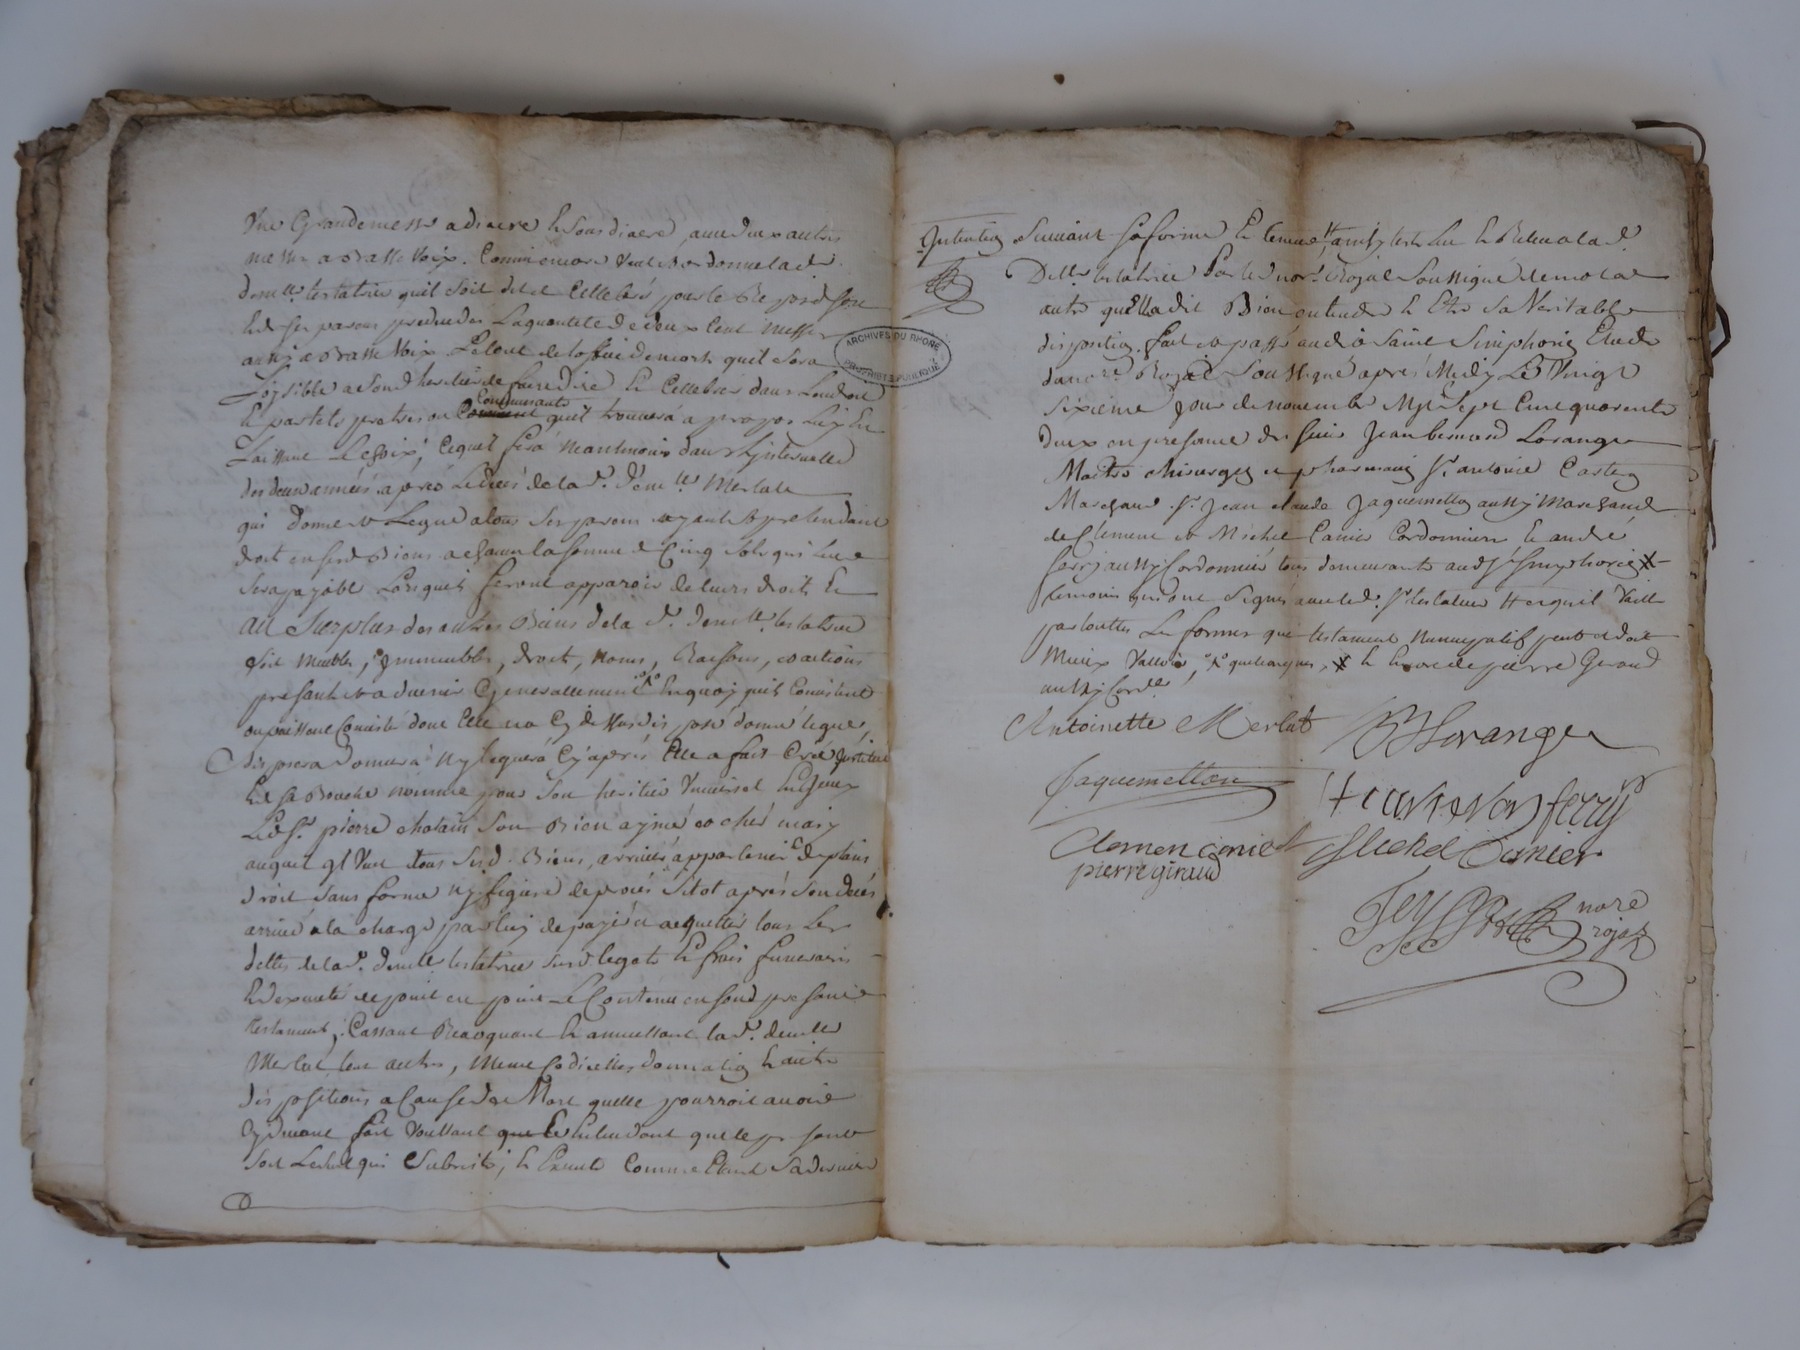 Une Grande messe a diacre & sous diacre, avec deux autres
messe a Basse Voix. Comm'encore Veut & ordonne lad.
dem.lle testatrice quil soit dit et Cellebré pour le Repos de son
& de ses parens predecedes La quantité de deux Cent Messes
aussy a Basse Voix Le tout de la sfuie de morts quil sera
Loysible a sond heritier de faire dire & Cellebrer dans L'endroit
& par tels pretres ou Communauté quil trouvera a propos Luy En
Laissant Le choix, Ceque fera neantmoins dans L'intervalle
des deux années aprés Le deces de la d. Dem.lle Merlat
qui donne & Legue a tous ses parens ayant & pretendant
droit en ses Biens a chacun la somme de Cinq sols qui leur
sera payable Lorsquils feront apparoir de leurs droits Et
au Surplus des autres Biens de la d. Dem.lle testatrice
soit Meubles, Immeubles, droit, noms, Raisons, & actions
presants & a duenir Generallement En quoy quils Consistent
ou puissent Consister dont Elle na Cy dessus disposé donné legué,
disposera donnera ny leguera Cy aprés Elle a fait Creé Institué
& de sa Bouche nommé pour Son heritier Universel Les Jeux
Led. Sr. pierre chatain Son Bien aymé & cher mary
auquel Il Veut tous Sesd. Biens, arriver appartenir de plain
droit Sans forme ny figure de procés Sitot aprés Son decés
arrivé a la charge par luy de payer & acquitter tous Les
dettes de la d. demlle testatrice Sesd legats & frais funeraires
& d'executer de point en point Le Contenu en Sond presant
testament, Cassant Revoquant & annullant la d. demlle
Merlat tout autres, Meme Codicilles donnation & autre
dispositions a Cause de Mort quelle pourroit avoir
Cy devant fait Voullant que Le & Entendant que le pr sent
Soit Le seul qui Subsiste, & Execute Comme Etant Sa derniere
Intention Suivant Sa forme & teneur, ainsy teste Leu & Releu a la d.
Dlle testatrice Par led nore. Royal Soussigné de mot a
autre quElle a dit Bien entendre & Etre Sa Veritable
disposition. fait & passé aud. Saint Simphorien Etude
dud nore. Royal Soussigné aprés Midy Le Vingt
sixieme jour de novembre Mil Sept Cent quarente
deux en presance de sieur Jean bernard Lorange
Maitre chirurgien et pharmacien Sr. antoine Caston
Marchand Sr. Jean claude Jaquemetton aussy Marchand
de Clement & Michel Canier Cordonniers & andré
ferry aussy Cordonnier tous demeurants aud St. Simphorien X
temoins qui ont Signés avec lad. testatrice & ce quil Vaille
par toutes Les formes que testament Nuncupatif peut et doit
Mieux Valloir, X quelconques, X & encore de pierre Geraud
aussy Cord.r
Antoinette Merlat
B Lorange
Jaquemetton
ferry
Clemen canier
Michel Canier
pierre giraud
nore
royal
ARCHIVES DU RHONE
PROPRIÉTÉ PUBLIQUE